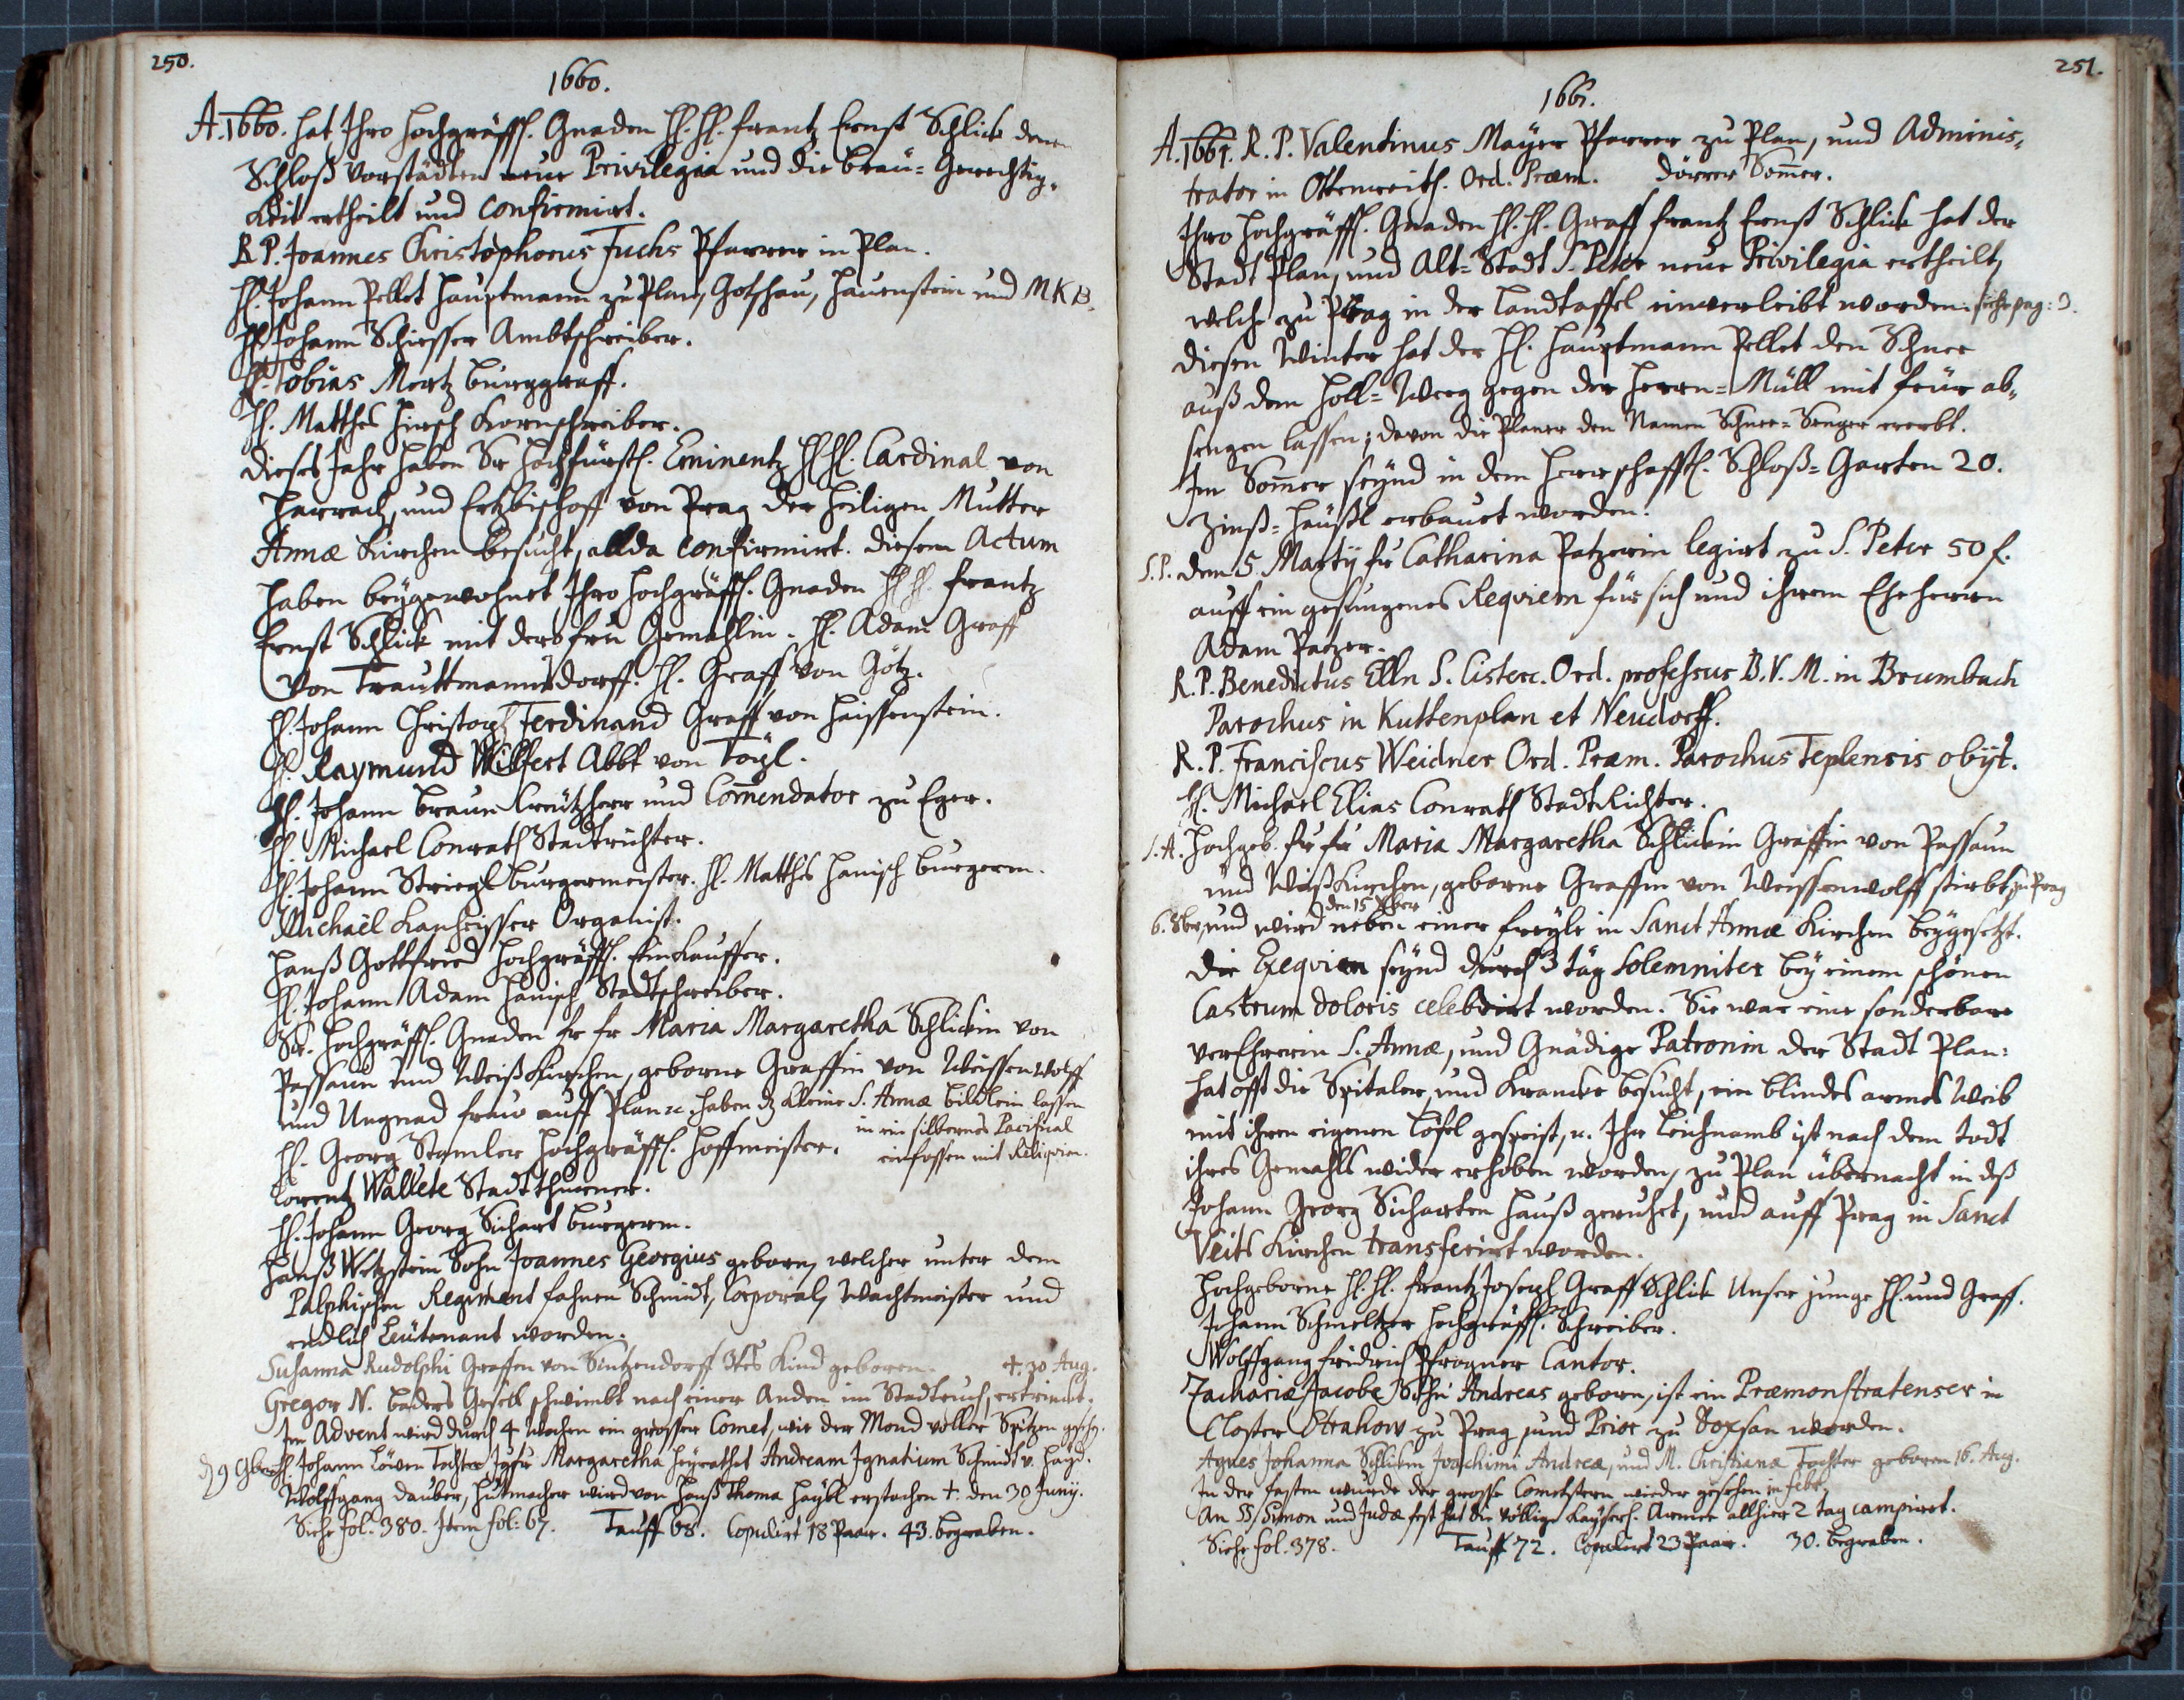 250.
1660.
A. 1660. hat Ihro Hochgräffl. Gnaden H. H. Frantz Ernst Schlick denen
Schloß Vorstädten neue Privilegia und die bräu= Gerechtig,
keit ertheilt und confirmirt.
R. P. Joannes Christophorus Fuchs Pfarrer in Plan.
H. Johann Pellet Hauptmann zu Plan, Gotschau, Hauenstein und M K B.
H. Johann Schiesser Ambtschreiber.
H. Tobias Mertz burggraff.
H. Matthes Hirsch Kornschreiber.
Dieses Jahr haben Se Hochfürstl. Eminentz H H. Cardinal von
Harrach, und Ertzbischoff von Prag der heiligen Mutter
Annæ Kirchen besucht, allda confirmirt. Diesem Actum
haben beÿgewohnet Ihro Hochgräffl. Gnaden H H. Frantz
Ernst Schlick mit dero fru Gemahlin. H. Adam Graff
von Trauttmannsdorff. H. Graff von Götz.
H. Johann Christoph Ferdinand Graff von Haissenstein.
H. Raymund Wilfert Abbt von Töpl.
H. Johann braun Creützherr und Comendator zu Eger.
H. Michael Conrath Stadtrichter.
H. Johann Striegl burgermeister. H. Matthes Hanisch burgerm.
Michaël Kanheisser Organist.
Hanß Gottfried Hochgräffl. Einkauffer.
H. Johann Adam Hanisch Stadtschreiber.
Se. Hochgräffl. Gnaden fr fr Maria Margaretha Schlickin von
Passaun und Weißkirchen, geborne Graffin von Weissenwolff
und Ungnad frau auff Plan etc. haben dz kleine S. Annæ bildlein lassen
in ein silbernes Pacifical
H. Georg Stamler Hochgräffl. Hoffmeister. einfassen mit Reliqvien.
Lorentz Wallete Stadtthurner.
H. Johann Georg Sichart burgerm.
Hanß Wetzstein Sohn Joannes Georgius geborn, welcher unter dem
Palphischen Regiment fahnen Schmidt, Corporal, Wachtmeister und
endlich Leütenant worden.
Susanna Rudolphi Graffen von Sintzendorff 3tes Kind geboren. +. 30 Aug.
Gregor N. baders Gesell schwimbt nach einer Anden im Stadtteuch, ertrinckt.
Im Advent wird durch 4 Wochen ein grosser Comet, wie der Mond voller Spitzen gesehn.
d 9 9ber H. Johann Löwen Tochter Jgfr Margaretha heyrathet Andream Ignatium Schmidt v. Hayd.
Wolffgang Dauber, Hutmacher wird von Hanß Thoma Haÿbl erstochen +. den 30 Junÿ.
Siehe fol. 380. Item fol: 67. Tauff 68. Copulirt 18 Paar. 43. begraben.
251.
1661.
A. 1661. R. P. Valentinus Mayer Pfarrer zu Plan, und Adminis,
trator in Ottenreith. Ord. Præm. Dörrer Somer.
Ihro Hochgräffl. Gnaden H. H. Graff Frantz Ernst Schlick hat der
Stadt Plan, und Alt=Stadt S. Peter neue Privilegia ertheilt,
welche zu Prag in der Landtaffel einverleibt worden. siehe pag: 3.
Diesen Winter hat der H. Hauptmann Pellet den Schnee
auß dem Holl=Weeg gegen der Herrn=Müll mit feür ab,
sengen lassen; davon die Planer den Namen Schnee=Senger ererbt.
Im Somer seÿnd in dem Herrschafftl. Schloß=Garten 20.
Zinß=Häußl erbauet worden.
S. P. Den 5. Martÿ fr Catharina Patzerin legirt zu S. Peter 50 f.
auff ein gesungenes Reqviem für sich und ihrem Eheherrn
Adam Patzer.
R. P. Benedictus Elln S. Cisterc. Ord. professus B. V. M. in Brumbach
Parochus in Kuttenplan et Neudorff.
R. P. Franciscus Weidner Ord. Præm. Parochus Teplensis obÿt.
H. Michael Elias Conrath Stadt Richter.
S. A. Hochgeb. fr fr Maria Margaretha Schlickin Graffin von Passaun
und Weißkirchen, geborne Graffin von Weissenwolff stirbt zu Prag
den 15 Xber
6. 8ber, und wird neben einer freÿle in Sanct Annæ Kirchen beÿgesetzt.
Die Exeqvien seÿnd durch 3 täg Solemniter beÿ einem schönen
Castrum doloris celebrirt worden. Sie war eine sonderbare
verEhrerin S. Annæ, und Gnädige Patronin der Stadt Plan:
hat offt die Spitaler, und Krancke besucht, ein blindes armes Weib
mit ihren eigenen Löfel gespeist, u. Ihr Leichnamb ist nach dem todt
ihres Gemahls wider erhoben worden, zu Plan übernacht in deß
Johann Georg Sicharten Hauß geruhet, und auff Prag in Sanct
Veits Kirchen transferirt worden.
Hochgeborne H. H. Frantz Joseph Graff Schlick Unser junge H. und Graff.
Johann Schmeltzer Hochgräffl. Schreiber.
Wolffgang Fridrich Pfrogner Cantor.
Zachariæ Jacobe Sohn Andreas geborn, ist ein Præmonstratenser in
Closter Strahow zu Prag, und Prior zu Doxsan worden.
Agnes Johanna Schlickin Joachimi Andreæ, und M. Christianæ Tochter geboren 16. Aug.
In der fasten wurde der grosse Cometstern wieder gesehen in febr.
An SS. Simon und Judæ fest hat die völlige Kaÿserl. Armee allhier 2 tag campiret.
Siehe fol. 378. Tauff 72. Copulirt 23 Paar. 30. begraben.